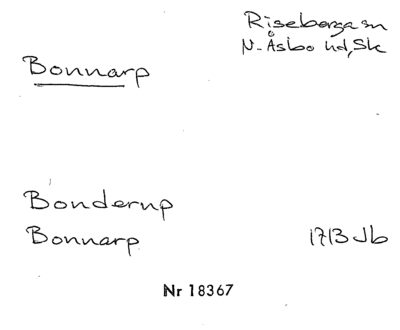 Riseberga sn
N. Åsbo hd, Sk
Bonnarp
Bonderup
Bonnarp 1713 Jb
Nr 18367